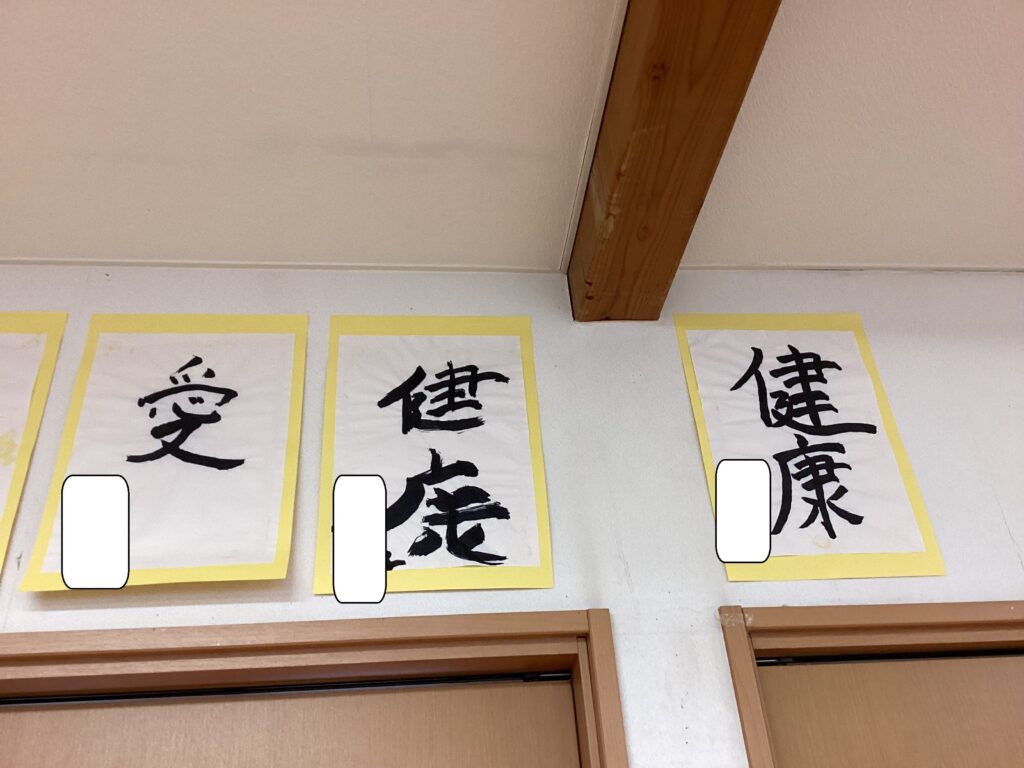 愛
健
康
健
康